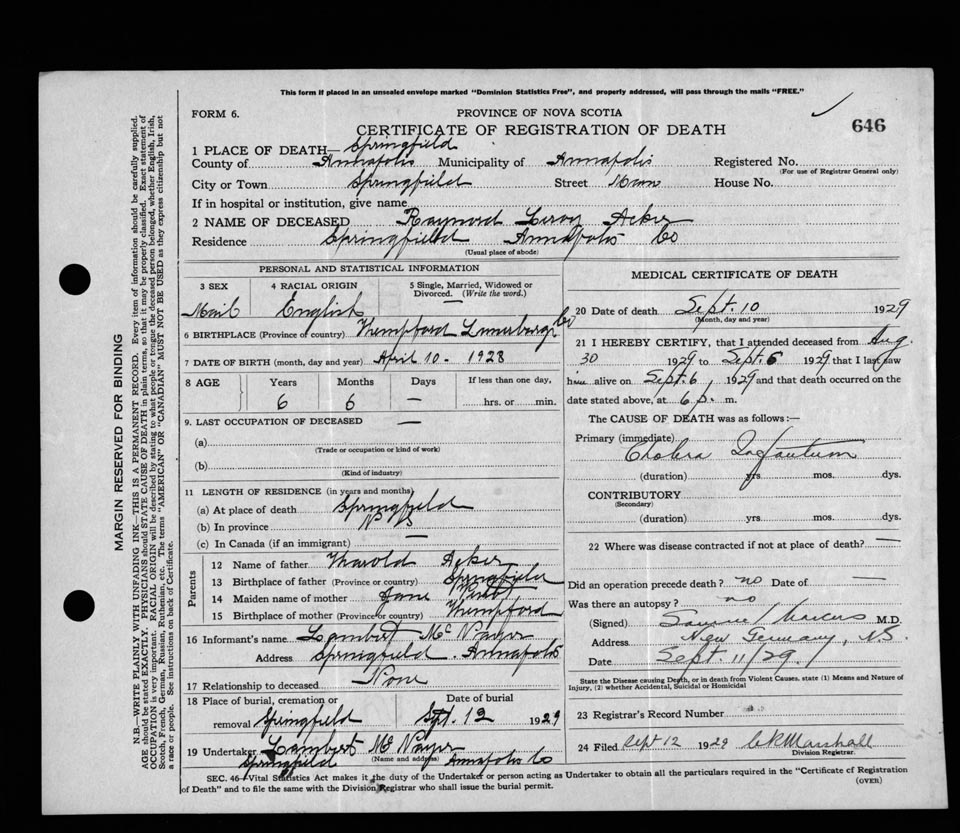 This form if placed in an unsealed envelope marked "Dominion Statistics Free", and properly addressed, will pass through the mails "FREE."
FORM 6.
PROVINCE OF NOVA SCOTIA
CERTIFICATE OF REGISTRATION OF DEATH
646
1 PLACE OF DEATH— Springfield
County of Annapolis Municipality of Annapolis Registered No.
(For use of Registrar General only)
City or Town Springfield Street Main House No.
If in hospital or institution, give name
2 NAME OF DECEASED Raymord Leroy Acker
Residence Springfield Annapolis Co
(Usual place of abode)
PERSONAL AND STATISTICAL INFORMATION
3 SEX 4 RACIAL ORIGIN 5 Single, Married, Widowed or Divorced. (Write the word.)
Mail English —
6 BIRTHPLACE (Province or country) Lunenburg Co
7 DATE OF BIRTH (month, day and year) April 10 - 1923
8 AGE Years Months Days If less than one day,
6 6 — hrs. or min.
9. LAST OCCUPATION OF DECEASED —
(a)
(Trade or occupation or kind of work)
(b)
(Kind of industry)
11 LENGTH OF RESIDENCE (in years and months)
(a) At place of death Springfield
(b) In province N S
(c) In Canada (if an immigrant) —
Parents
12 Name of father Harold Acker
13 Birthplace of father (Province or country) Springfield
14 Maiden name of mother Jane
15 Birthplace of mother (Province or country)
16 Informant's name Lambert McNayer
Address Springfield . Annapolis
17 Relationship to deceased None
18 Place of burial, cremation or removal Springfield Date of burial Spt. 12 1929
19 Undertaker Lambert McNayer
(Name and address)
Springfield Annapolis Co
MEDICAL CERTIFICATE OF DEATH
20 Date of death Sept. 10 1929
(Month, day and year)
21 I HEREBY CERTIFY, that I attended deceased from Aug.
30 1929 to Sept. 6 1929 that I last saw
him alive on Sept. 6, 1929 and that death occurred on the
date stated above, at 6 p. m.
The CAUSE OF DEATH was as follows:—
Primary (immediate)
Cholera Infantum
(duration) yrs. mos. dys.
CONTRIBUTORY
(Secondary)
(duration) yrs. mos. dys.
22 Where was disease contracted if not at place of death? —
Did an operation precede death? no Date of —
Was there an autopsy? no
(Signed) Samuel Marcus M.D.
Address New Germany, N.S.
Date Sept. 11/29.
State the Disease causing Death, or in death from Violent Causes, state (1) Means and Nature of Injury, (2) whether Accidental, Suicidal or Homicidal
23 Registrar's Record Number
24 Filed Sept 12 1929 C R Marshall
Division Registrar.
SEC. 46—Vital Statistics Act makes it the duty of the Undertaker or person acting as Undertaker to obtain all the particulars required in the "Certificate of Registration of Death" and to file the same with the Division Registrar who shall issue the burial permit.
(OVER)
MARGIN RESERVED FOR BINDING
N.B.—WRITE PLAINLY WITH UNFADING INK—THIS IS A PERMANENT RECORD. Every item of information should be carefully supplied.
AGE should be stated EXACTLY. PHYSICIANS should STATE CAUSE OF DEATH in plain terms, so that it may be properly classified. Exact statement of
OCCUPATION is very important. RACIAL ORIGIN will be described by stating to what people or tongue the deceased person belonged, whether English, Irish,
Scotch, French, German, Russian, Ruthenian, etc. The terms "AMERICAN" OR "CANADIAN" MUST NOT BE USED as they express citizenship but not
a race or people. See instructions on back of Certificate.